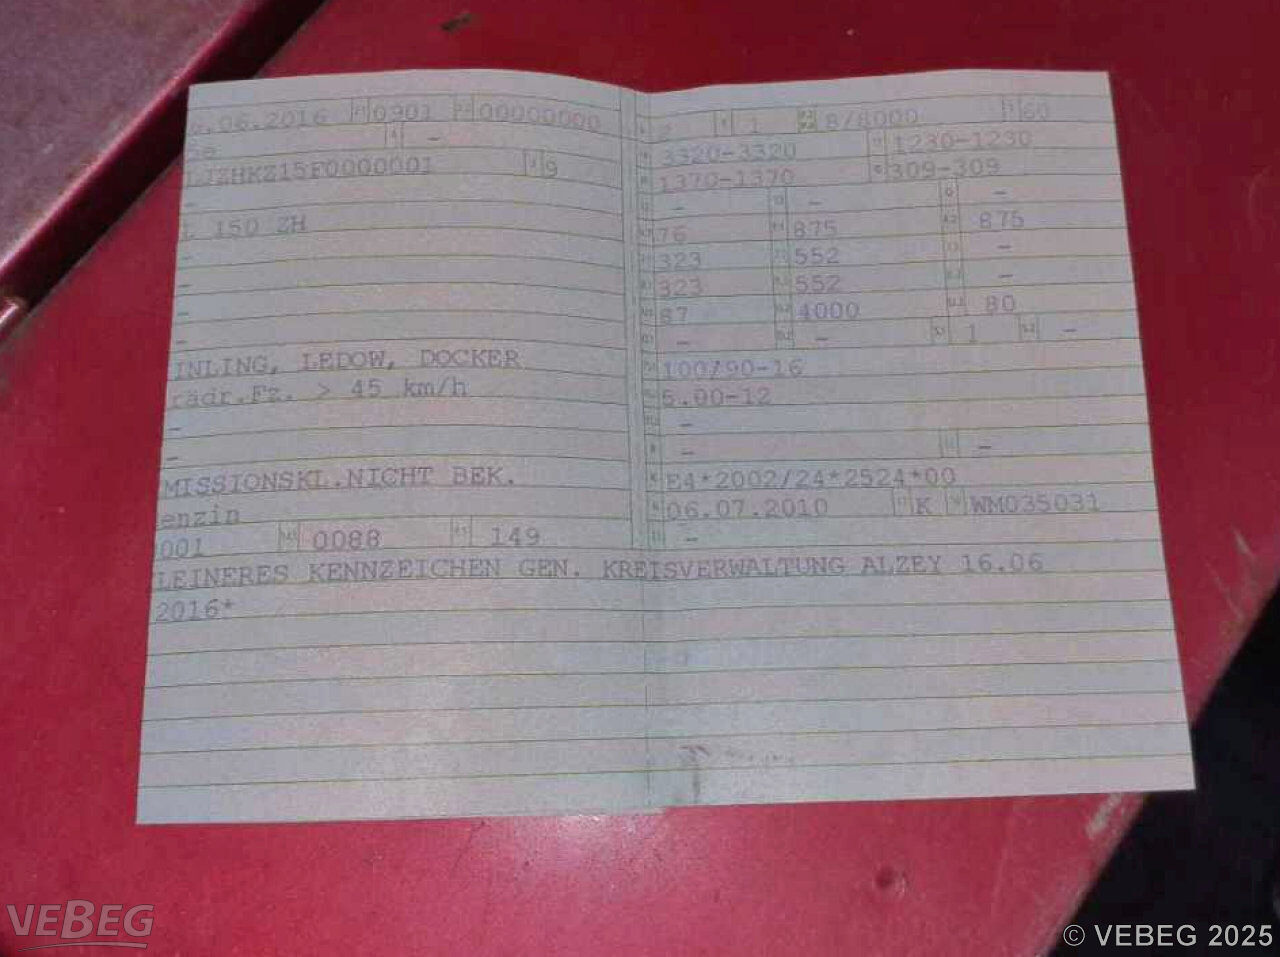 .06.2016 0901 00000000
-
LJZHKZ15F0000001 9
-
L 150 ZH
-
-
-
-
INLING, LEDOW, DOCKER
rädr.Fz. > 45 km/h
-
-
MISSIONSKL.NICHT BEK.
enzin
001 0088 149
2 1 8/8000 60
3320-3320 1230-1230
1370-1370 309-309
- - -
76 875 875
323 552 -
323 552 -
87 4000 80
- - 1 -
100/90-16
5.00-12
-
- -
E4*2002/24*2524*00
06.07.2010 K WM035031
-
LEINERES KENNZEICHEN GEN. KREISVERWALTUNG ALZEY 16.06
2016*
VEBEG
© VEBEG 2025